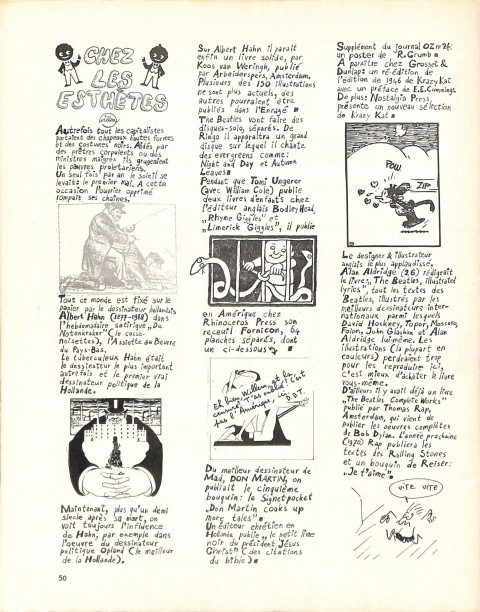 CHEZ
LES
ESTHÈTES
Autrefois tout les capitalistes
portaient des chapeaux hautes formes
et des costumes noirs. Aidés par
des prêtres corpulents ou des
ministres maigres ils grugeaient
les pauvres prolétariens.
Un seul fois par an le soleil se
levait: le premier mai. A cette
occasion l'ouvrier opprimé
rompait ses chaînes.
Tout ce monde est fixé sur le
papier par le dessinateur hollandais
Albert Hahn (1877-1918) dans
l'hebdomadaire satirique „De
Notenkraker" (le casse-
noisettes), l'Assiette au Beurre
du Pays-Bas.
Le tuberculeux Hahn était
le dessinateur le plus important
autrefois et le premier vrai
dessinateur politique de la
Hollande.
Maintenant, plus qu'un demi
siècle après sa mort, on
voit toujours l'influence
de Hahn, par exemple dans
l'oeuvre du dessinateur
politique Opland (le meilleur
de la Hollande).
50
Sur Albert Hahn il parait
enfin un livre solide, par
Koos van Weringh, publié
par Arbeiderspers, Amsterdam.
Plusieurs des 150 illustrations
ne sont plus actuels, des
autres pourraient être
publiés dans l'Enragé
The Beatles vont faire des
disques-solo, séparés. De
Ringo il apparaîtra un grand
disque sur lequel il chante
des evergreens comme:
Night and Day et Autumn
Leaves
Pendant que Tomi Ungerer
(avec William Cole) publie
deux livres d'enfants chez
l'éditeur anglais Bodley Head,
„Rhyme Giggles" et
„Limerick Giggles", il publie
en Amérique chez
Rhinoceros Press son
receuil Fornicon, 64
planches séparés, dont
un ci-dessous
Du meilleur dessinateur de
Mad, DON MARTIN, on
publiait le cinquième
bouquin: le Signetpocket
„Don Martin cooks up
more tales"
Un éditeur chrétien en
Hollande publie „le petit livre
noir du président Jésus
Christ" (des citations
du bible)
Supplément du journal OZ nº 26:
un poster de R. Crumb
A paraître chez Grosset &
Dunlap: un ré-édition de
l'édition de 1946 de Krazy Kat
avec un préface de E.E. Cummings.
De plus: Nostalgia Press,
présente un nouveau sélection
de Krazy Kat
POW
ZIP
Le designer & illustrateur
anglais le plus applaudissé,
Alan Aldridge (26) rédigeait
le livre „The Beatles, illustrated
lyrics", tout les textes des
Beatles, illustrés par les
meilleurs dessinateurs inter-
nationaux parmi lesquels
David Hockney, Topor, Moscoso,
Folon, John Glashan et Alan
Aldridge lui-même. Les
illustrations (la plupart en
couleurs) perdraient trop
pour les reproduire ici,
c'est mieux d'acheter le livre
vous-même.
D'ailleurs il y avait déjà un livre
„The Beatles Complete Works"
publié par Thomas Rap,
Amsterdam, qui vient de
publier les oeuvres complètes
de Bob Dylan. L'année prochaine
(1970) Rap publiera les
textes des Rolling Stones
et un bouquin de Reiser:
„Je t'aime"
VITE VITE